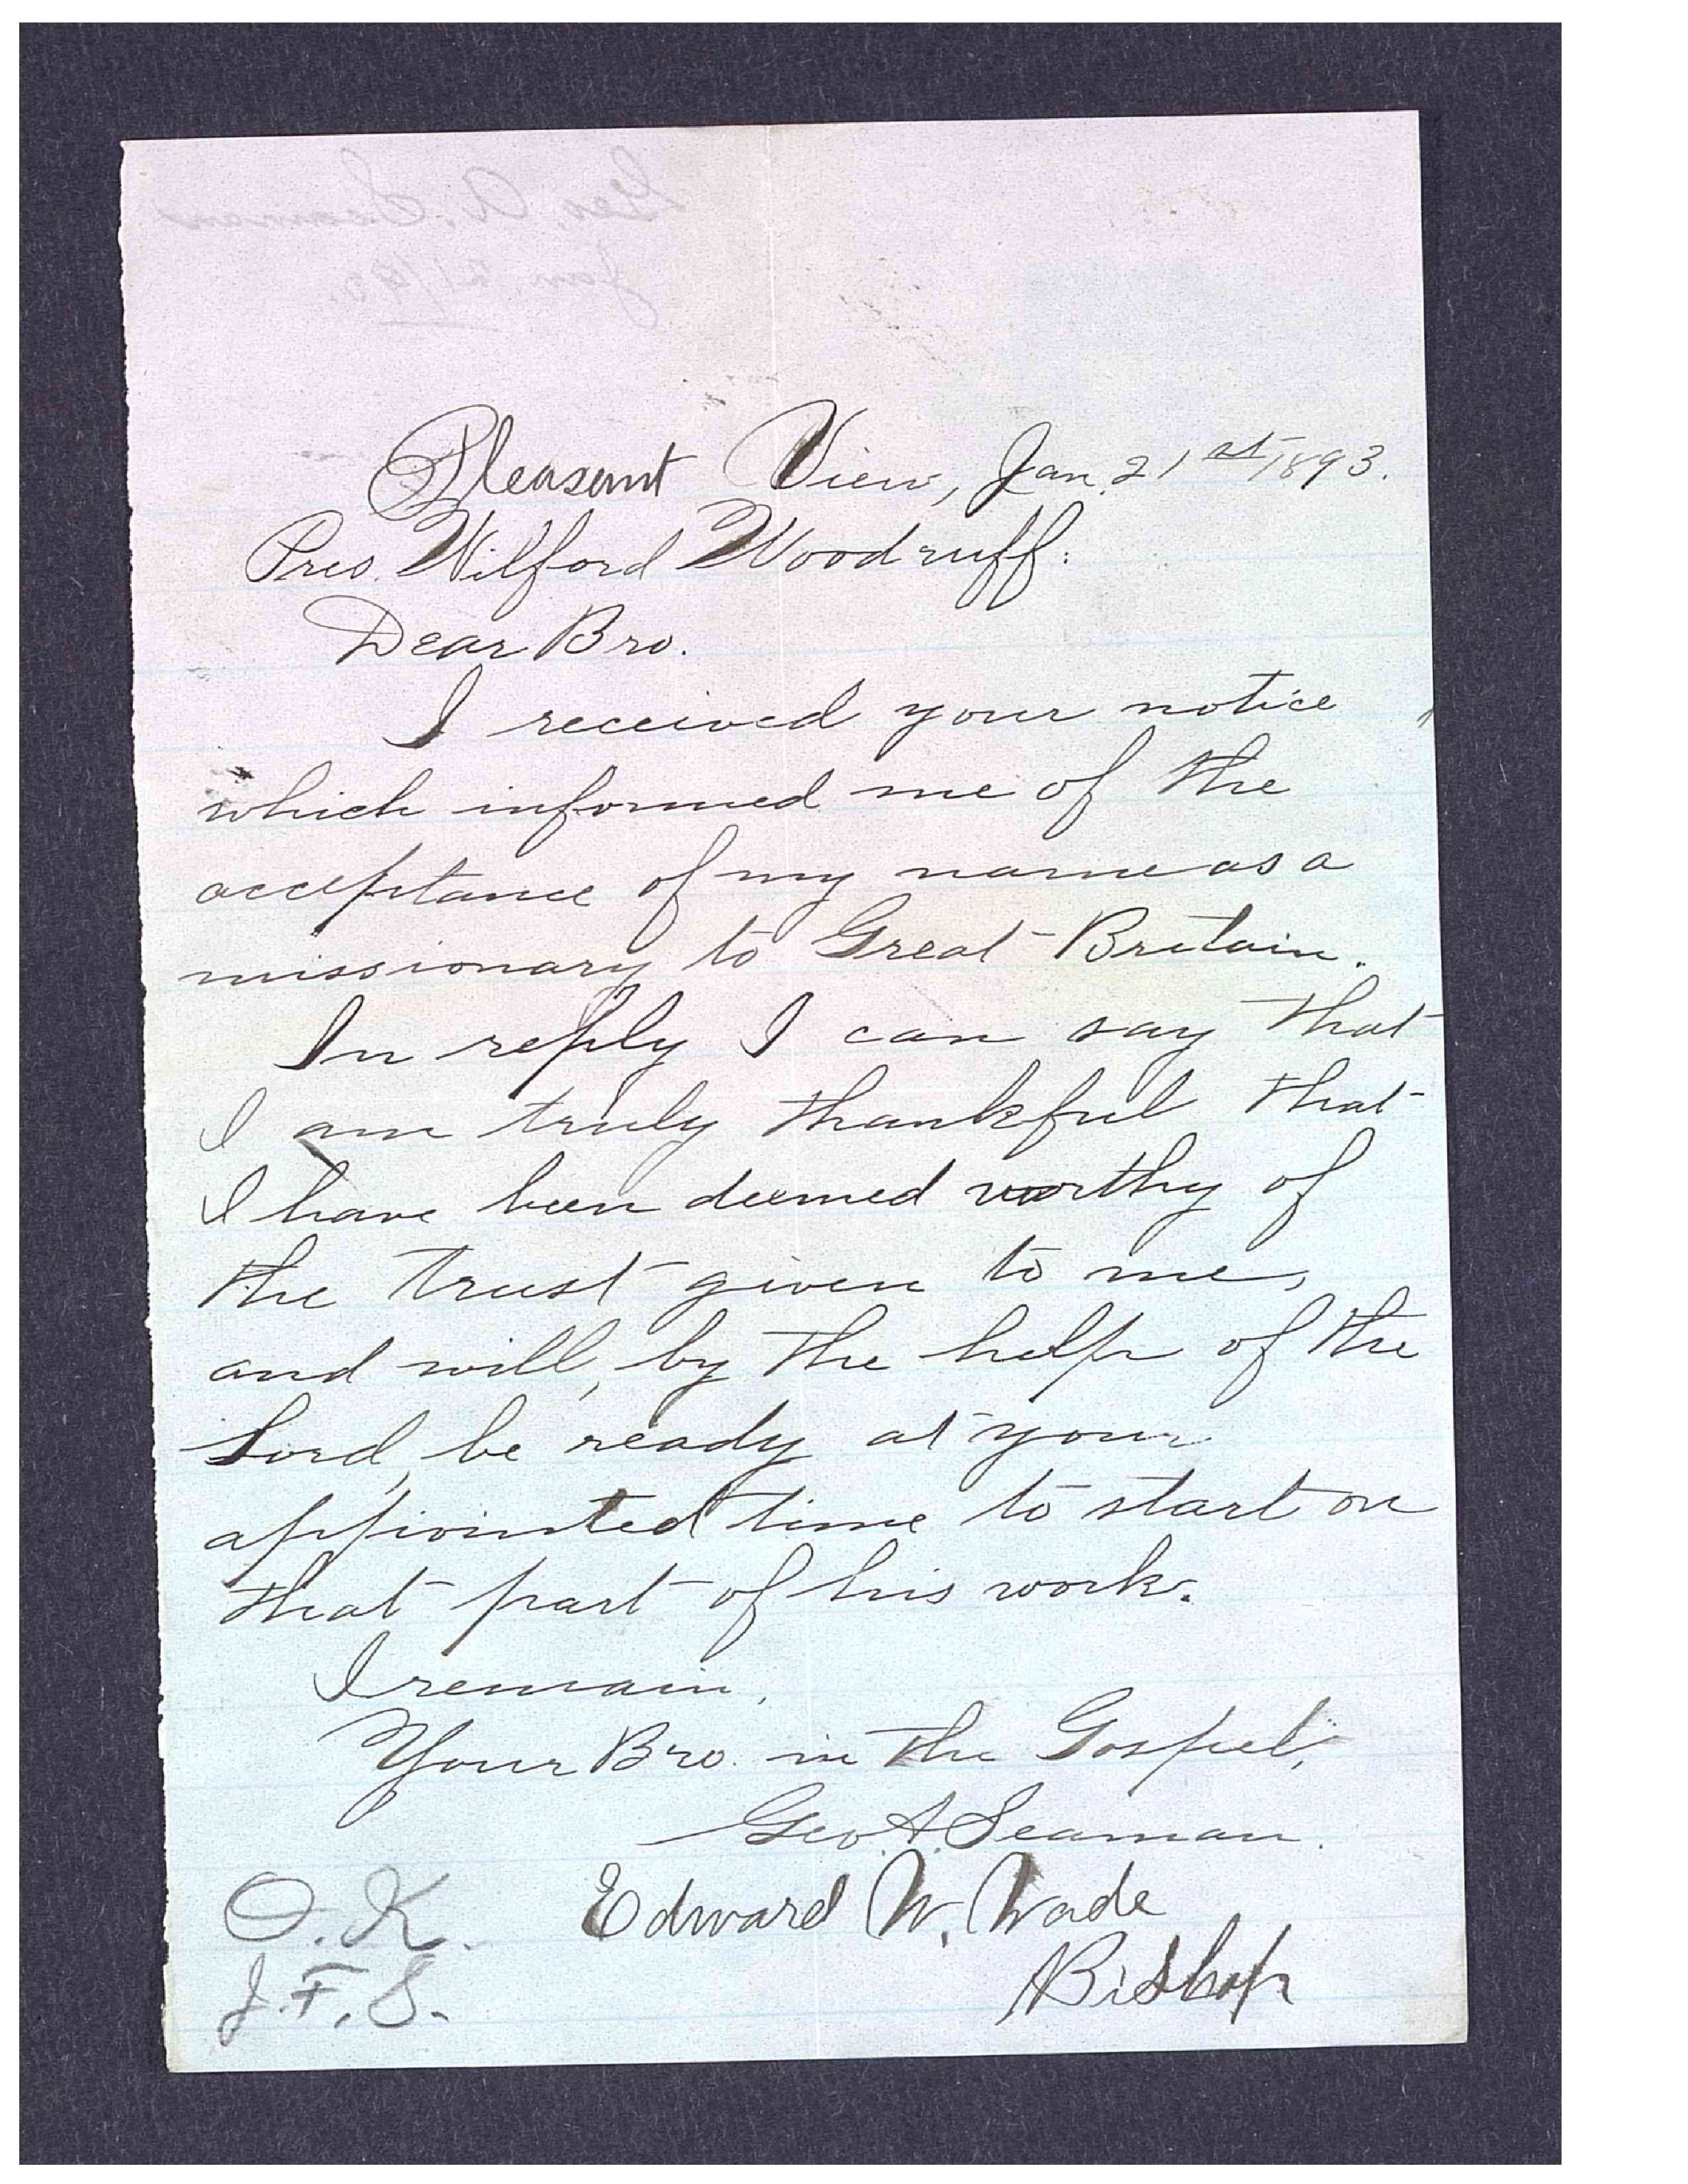 Pleasant View, Jan. 21st 1893.
Pres. Wilford Woodruff:
Dear Bro.
I received your notice
which informed me of the
acceptance of my name as a
missionary to Great Britain.
In reply I can say that
I am truly thankful that
I have been deemed worthy of
the trust given to me,
and will, by the help of the
Lord, be ready at your
appointed time to start on
that part of his work.
I remain,
Your Bro. in the Gospel,
Geo. A. Seaman.
Edward W. Wade
Bishop
O.K.
J.F.S.